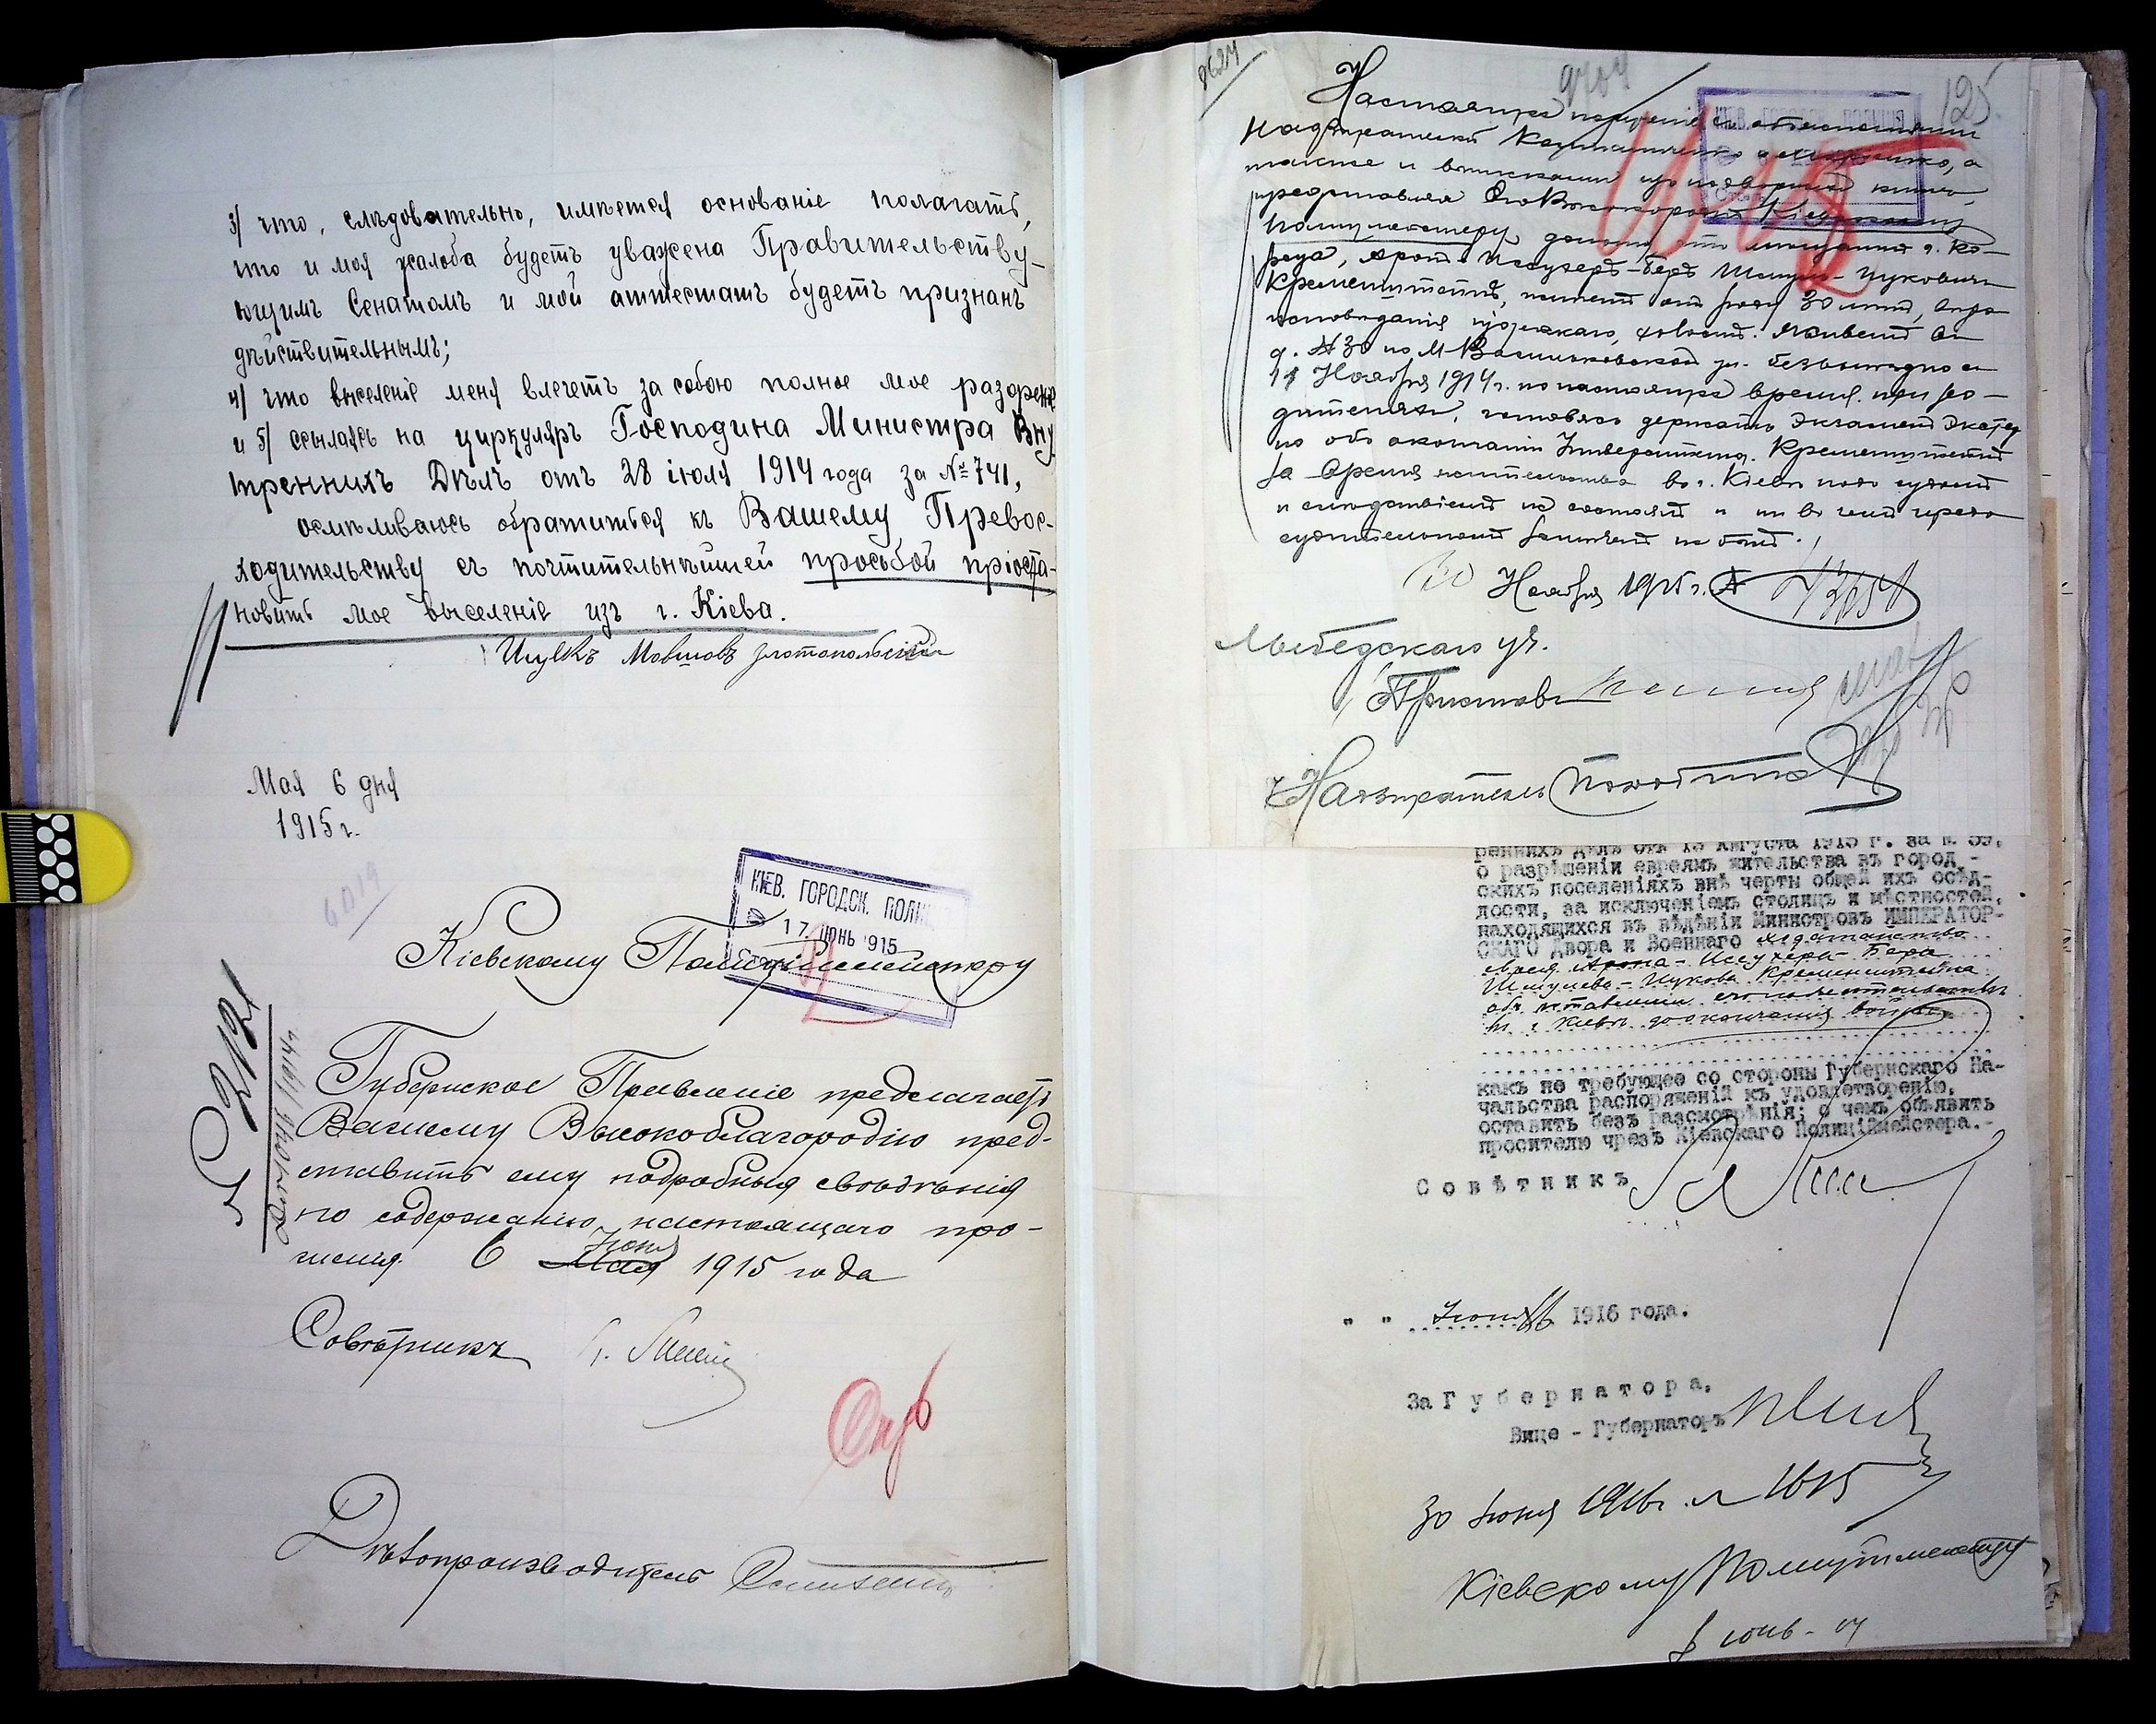 3/ что, слѣдовательно, имѣется основаніе полагать,
что и моя жалоба будетъ уважена Правительству-
ющимъ Сенатомъ и мой аттестатъ будетъ признанъ
дѣйствительнымъ;
4/ что выселеніе меня влечетъ за собою полное мое разорение
и 5/ ссылаясь на циркуляръ Господина Министра Вну
треннихъ Дѣлъ отъ 28 іюля 1914 года за № 741,
осмѣливаюсь обратиться къ Вашему Превос-
ходительству съ почтительнѣйшей просьбой пріоста-
новить мое выселеніе изъ г. Кіева.
Ицекъ Мовшовъ Златопольскій
Мая 6 дня
1915 г.
6019
КІЕВ. ГОРОДСК. ПОЛИЦ
17 ІЮНЬ 1915
Кіевскому Полиціймейстеру
№ 2121
Губернское Правленіе предлагаетъ
Вашему Высокоблагородію пред-
ставить ему подробныя свѣдѣнія
по содержанію настоящаго про-
шенія. 6 Мая Іюня 1915 года
Совѣтникъ
Дѣлопроизводитель
9624
9704
125
КІЕВ. ГОРОДСК. ПОЛИЦІЯ
Настоящее порученіе съ объясненіями
Надзирателей
также и выписками изъ домовой книги,
представляя Его Высокородію Кіевскому
Полицмейстеру, доношу, что мѣщанинъ г. Ко-
Аронъ Иссухеръ-Беръ Шмулъ-Цуковичъ
Кременштейнъ, имѣетъ отъ роду 30 лѣтъ, вѣро
исповѣданія іудейскаго, холостъ. Живетъ въ
д. № 30 по М Васильковской ул. безвыѣздно съ
11 Ноября 1914 г. по настоящее время при ро-
дителяхъ, готовясь держать экзаменъ
по объ окончаніи Университета. Кременштейнъ
за время жительства въ г. Кіевѣ подъ судомъ
и слѣдствіемъ не состоялъ и ни въ чемъ предо
судительномъ замѣченъ не былъ.
30 Ноября 1915 г. №
Лыбедскаго уч.
Приставъ
Надзиратель
реннихъ дѣлъ отъ 15 Августа 1915 г. за н. 39,
о разрѣшеніи евреямъ жительства въ город -
скихъ поселеніяхъ внѣ черты общей ихъ осѣд-
лости, за исключеніемъ столицъ и мѣстностей,
находящихся въ вѣдѣніи Министровъ ИМПЕРАТОР-
СКАГО Двора и Военнаго ходатайство
еврея Арона-Иссухера-Бера
Шмулева-Цукова Кременштейна
объ оставленіи его на жительствѣ
въ г. Кіевѣ до окончанія войны
какъ не требующее со стороны Губернскаго На-
чальства распоряженій къ удовлетворенію,
оставить безъ разсмотрѣнія; о чемъ объявить
просителю чрезъ Кіевскаго Полиціймейстера.-
Совѣтникъ
" " Іюня 1916 года.
За Губернатора,
Вице - Губернаторъ
30 Іюня 1916 г. № 1615
Кіевскому Полиціймейстеру